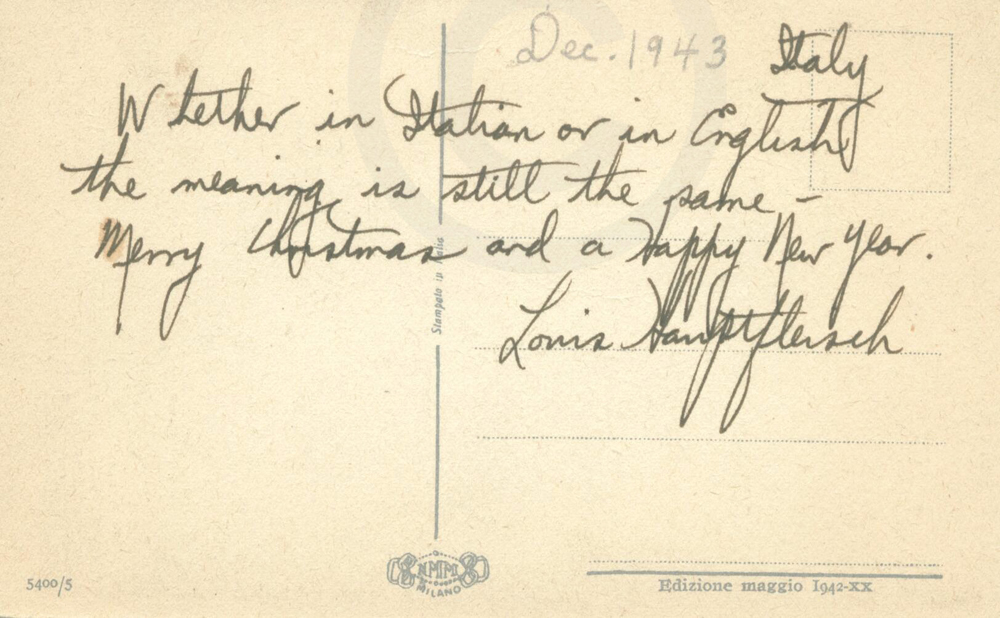 Dec. 1943 Italy
Whether in Italian or in English
the meaning is still the same –
Merry Christmas and a Happy New Year.
Louis Hauptfleisch
Stampato in Italia
5400/5
MILANO
Edizione maggio 1942-XX